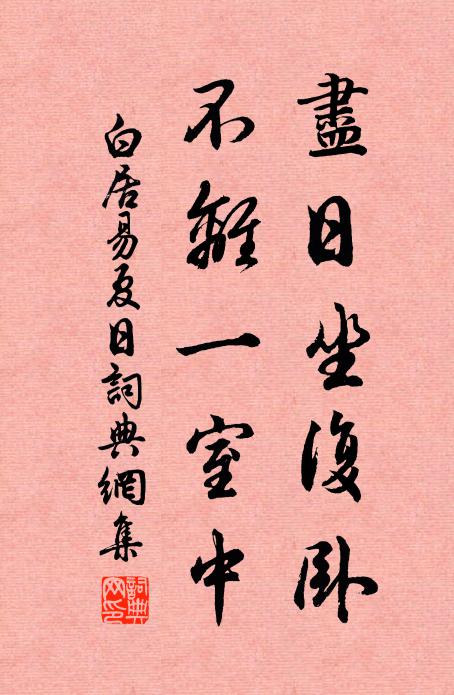 盡日坐復卧
不離一室中
白居易夏日詞典網集
詞典
网印